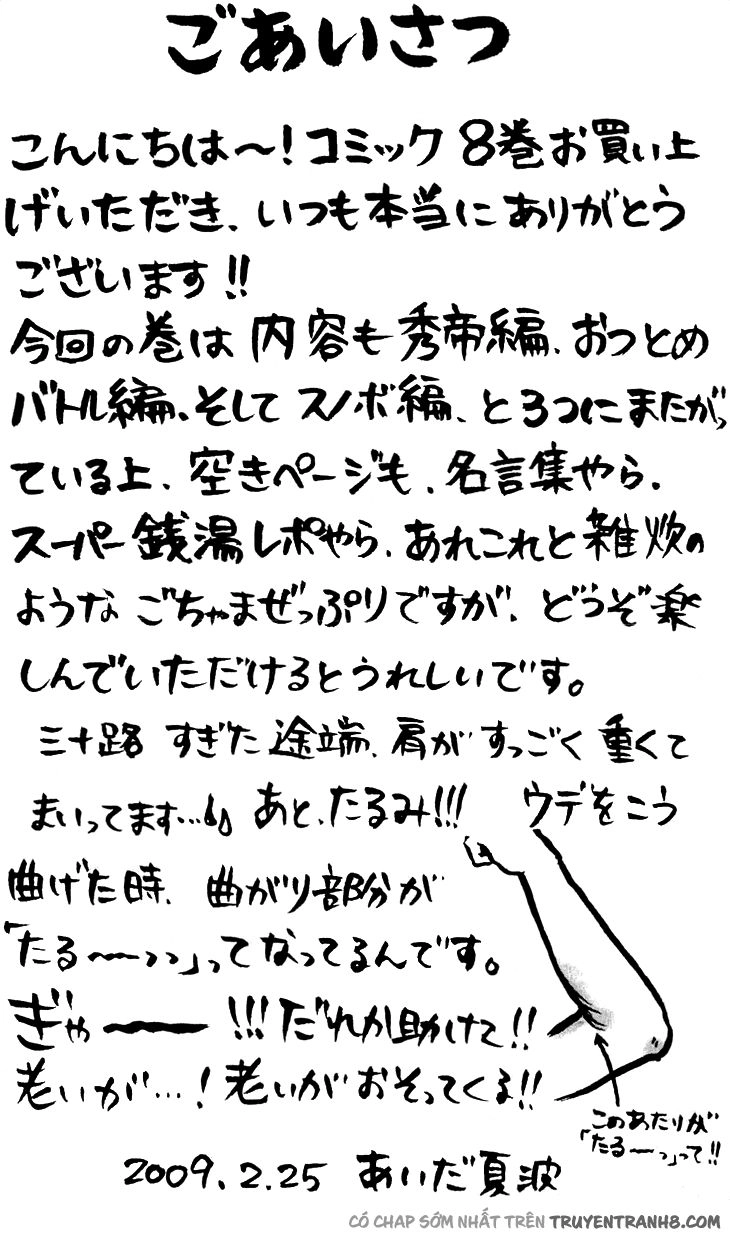 ごあいさつ
こんにちは〜!コミック8巻お買い上
げいただき、いつも本当にありがとう
ございます!!
今回の巻は内容も秀帝編、おつとめ
バトル編、そしてスノボ編、と3つにまたがっ
ている上、空きページも、名言集やら、
スーパー銭湯レポやら、あれこれと雑炊の
ようなごちゃまぜっぷりですが、どうぞ楽
しんでいただけるとうれしいです。
三十路すぎた途端、肩がすっごく重くて
まいってます…あと、たるみ!!! ウデをこう
曲げた時、曲がり部分が
「たる〜〜っっ」ってなってるんです。
ぎゃーー!!!だれか助けて!!
老いが…!老いがおそってくる!!
このあたりが
「たる〜っ」って!!
2009.2.25 あいだ夏波
CÓ CHAP SỚM NHẤT TRÊN TRUYENTRANH8.COM